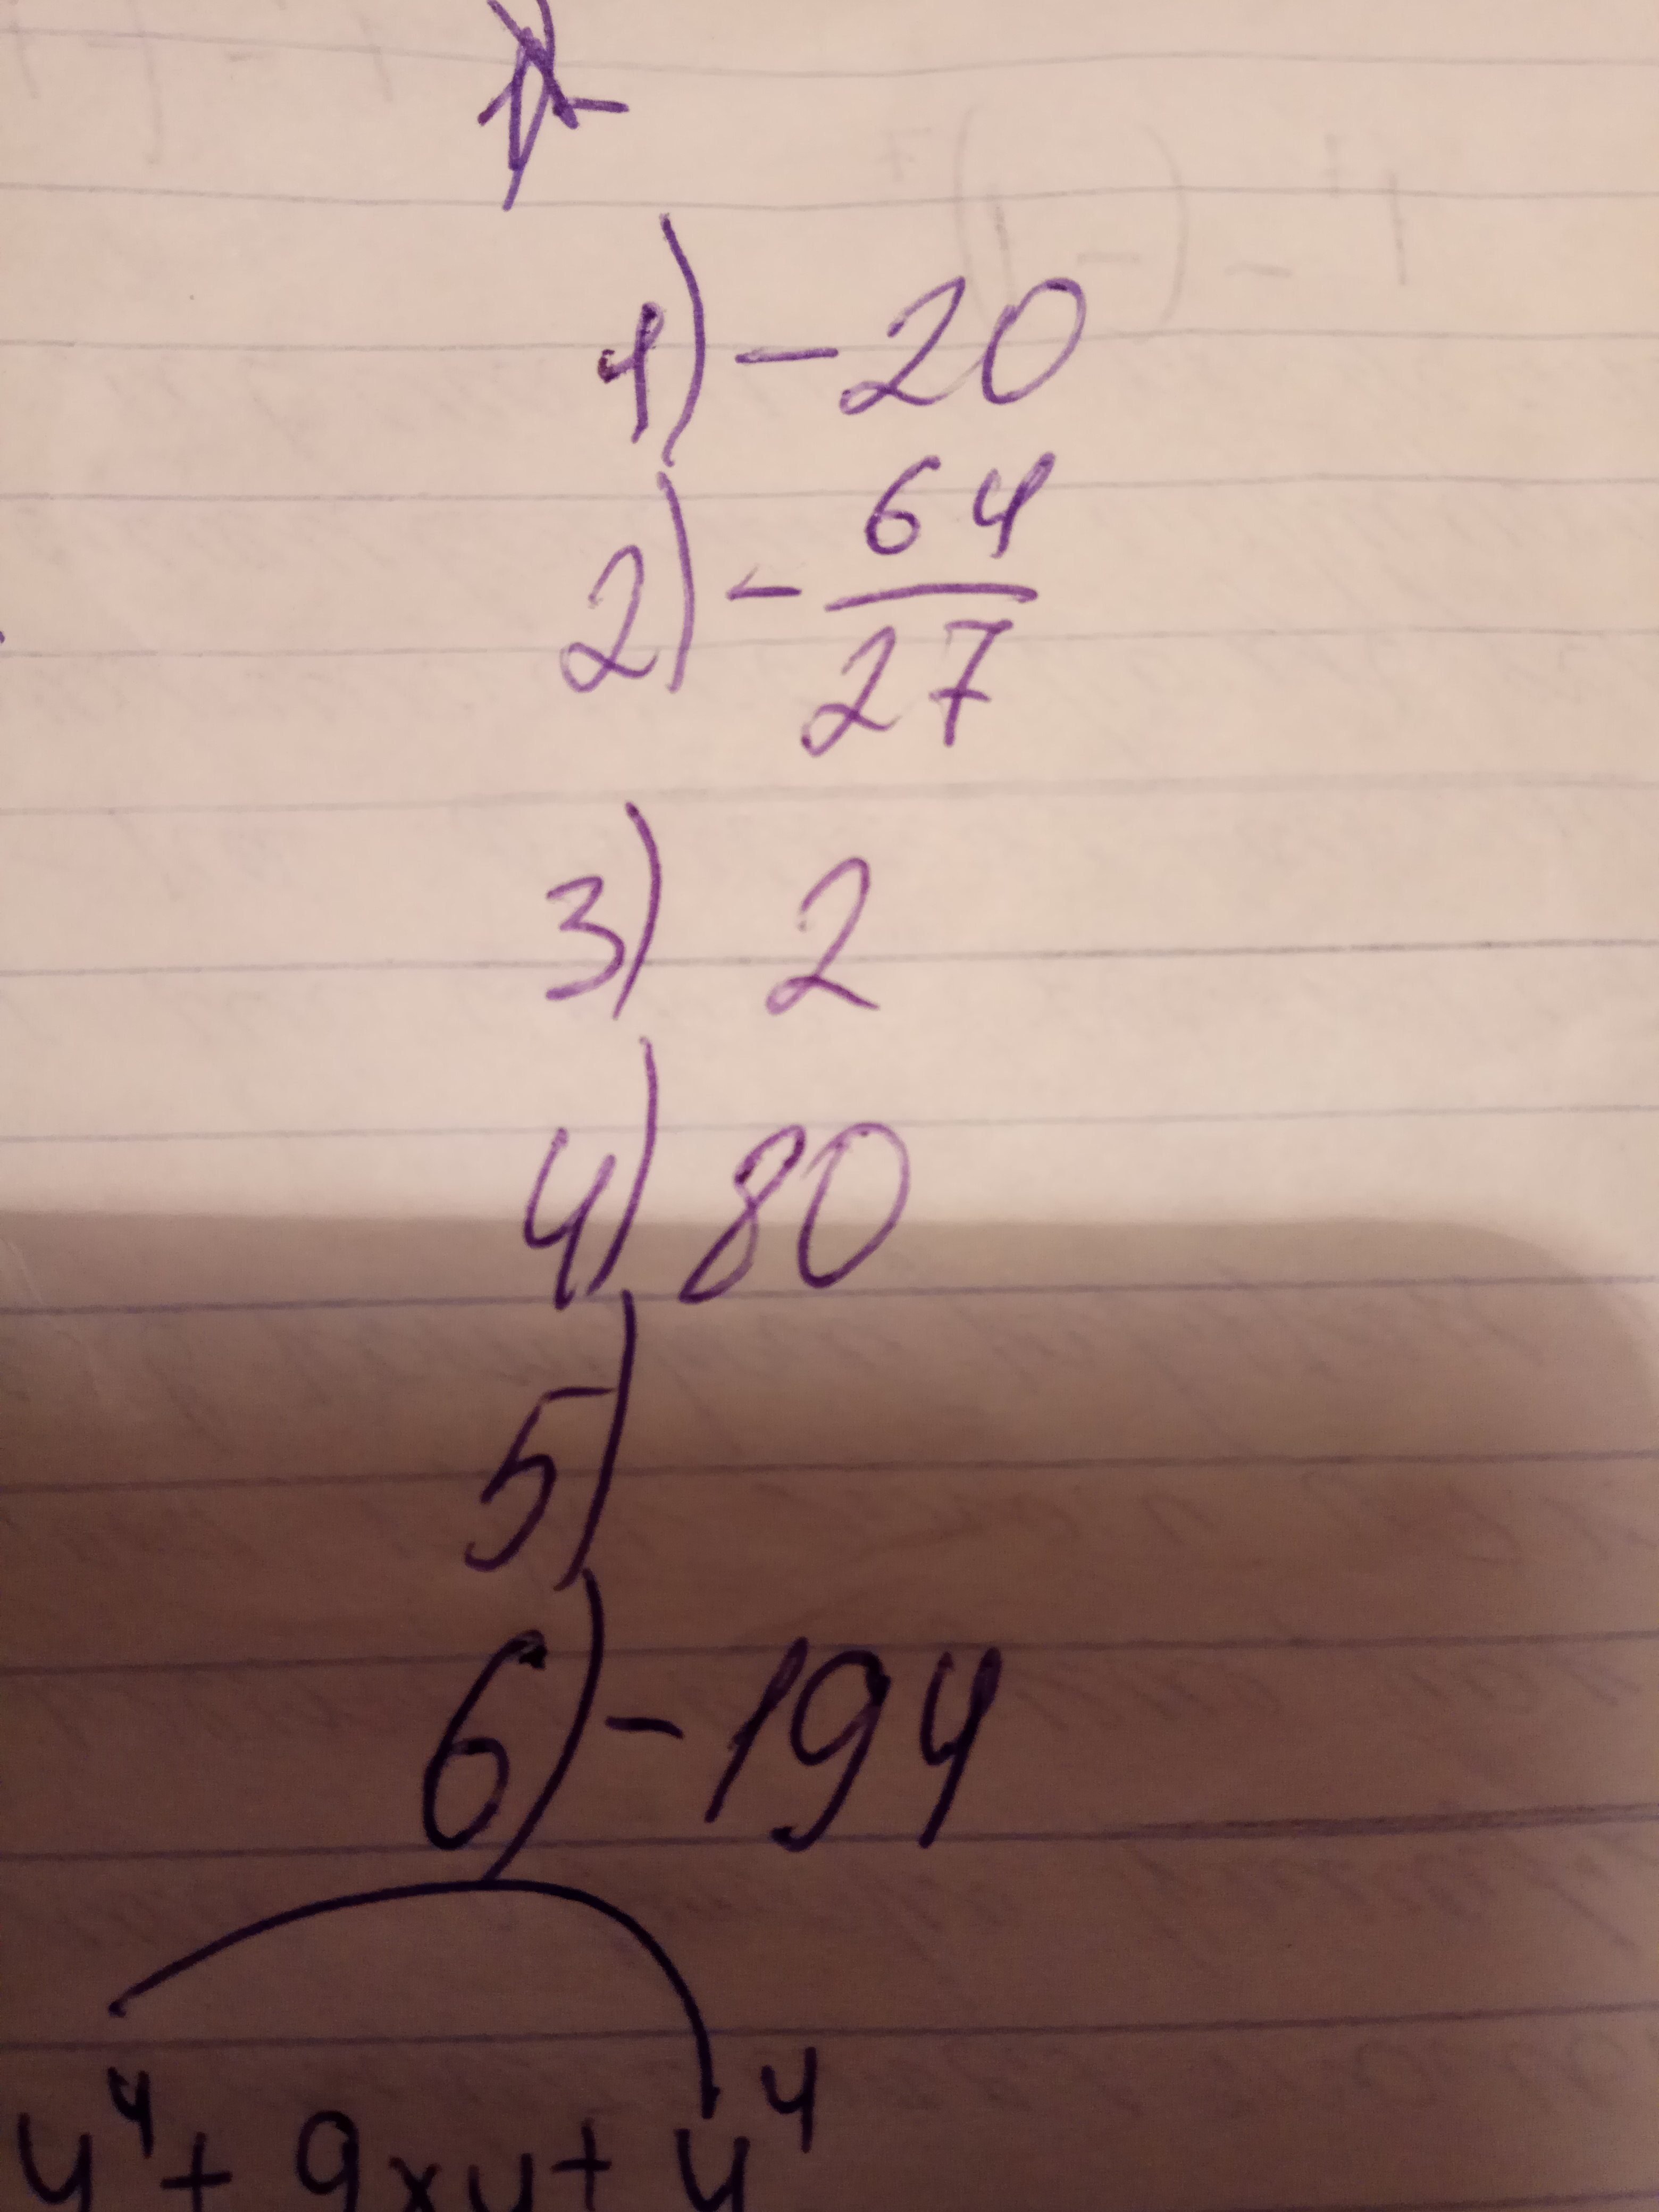 1) -20
2) - 64/27
3) 2
4) 80
5)
6) -194
y⁴ + 9xy + y⁴